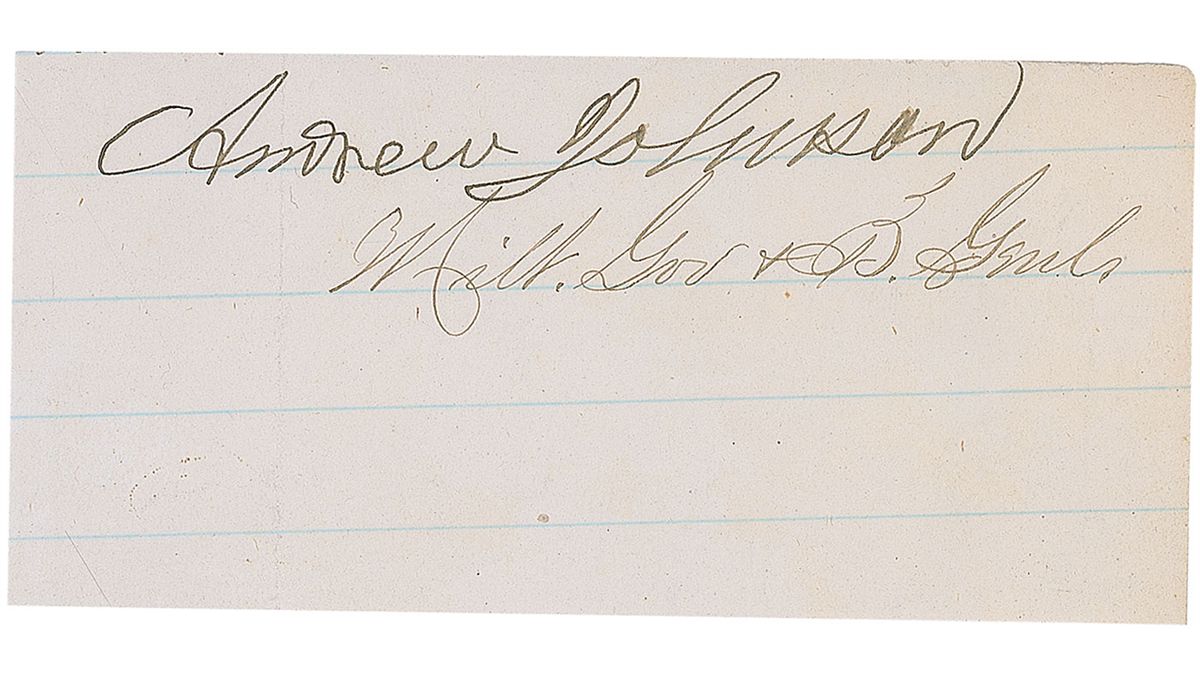 Andrew Johnson
Milt. Gov & B. Genl.